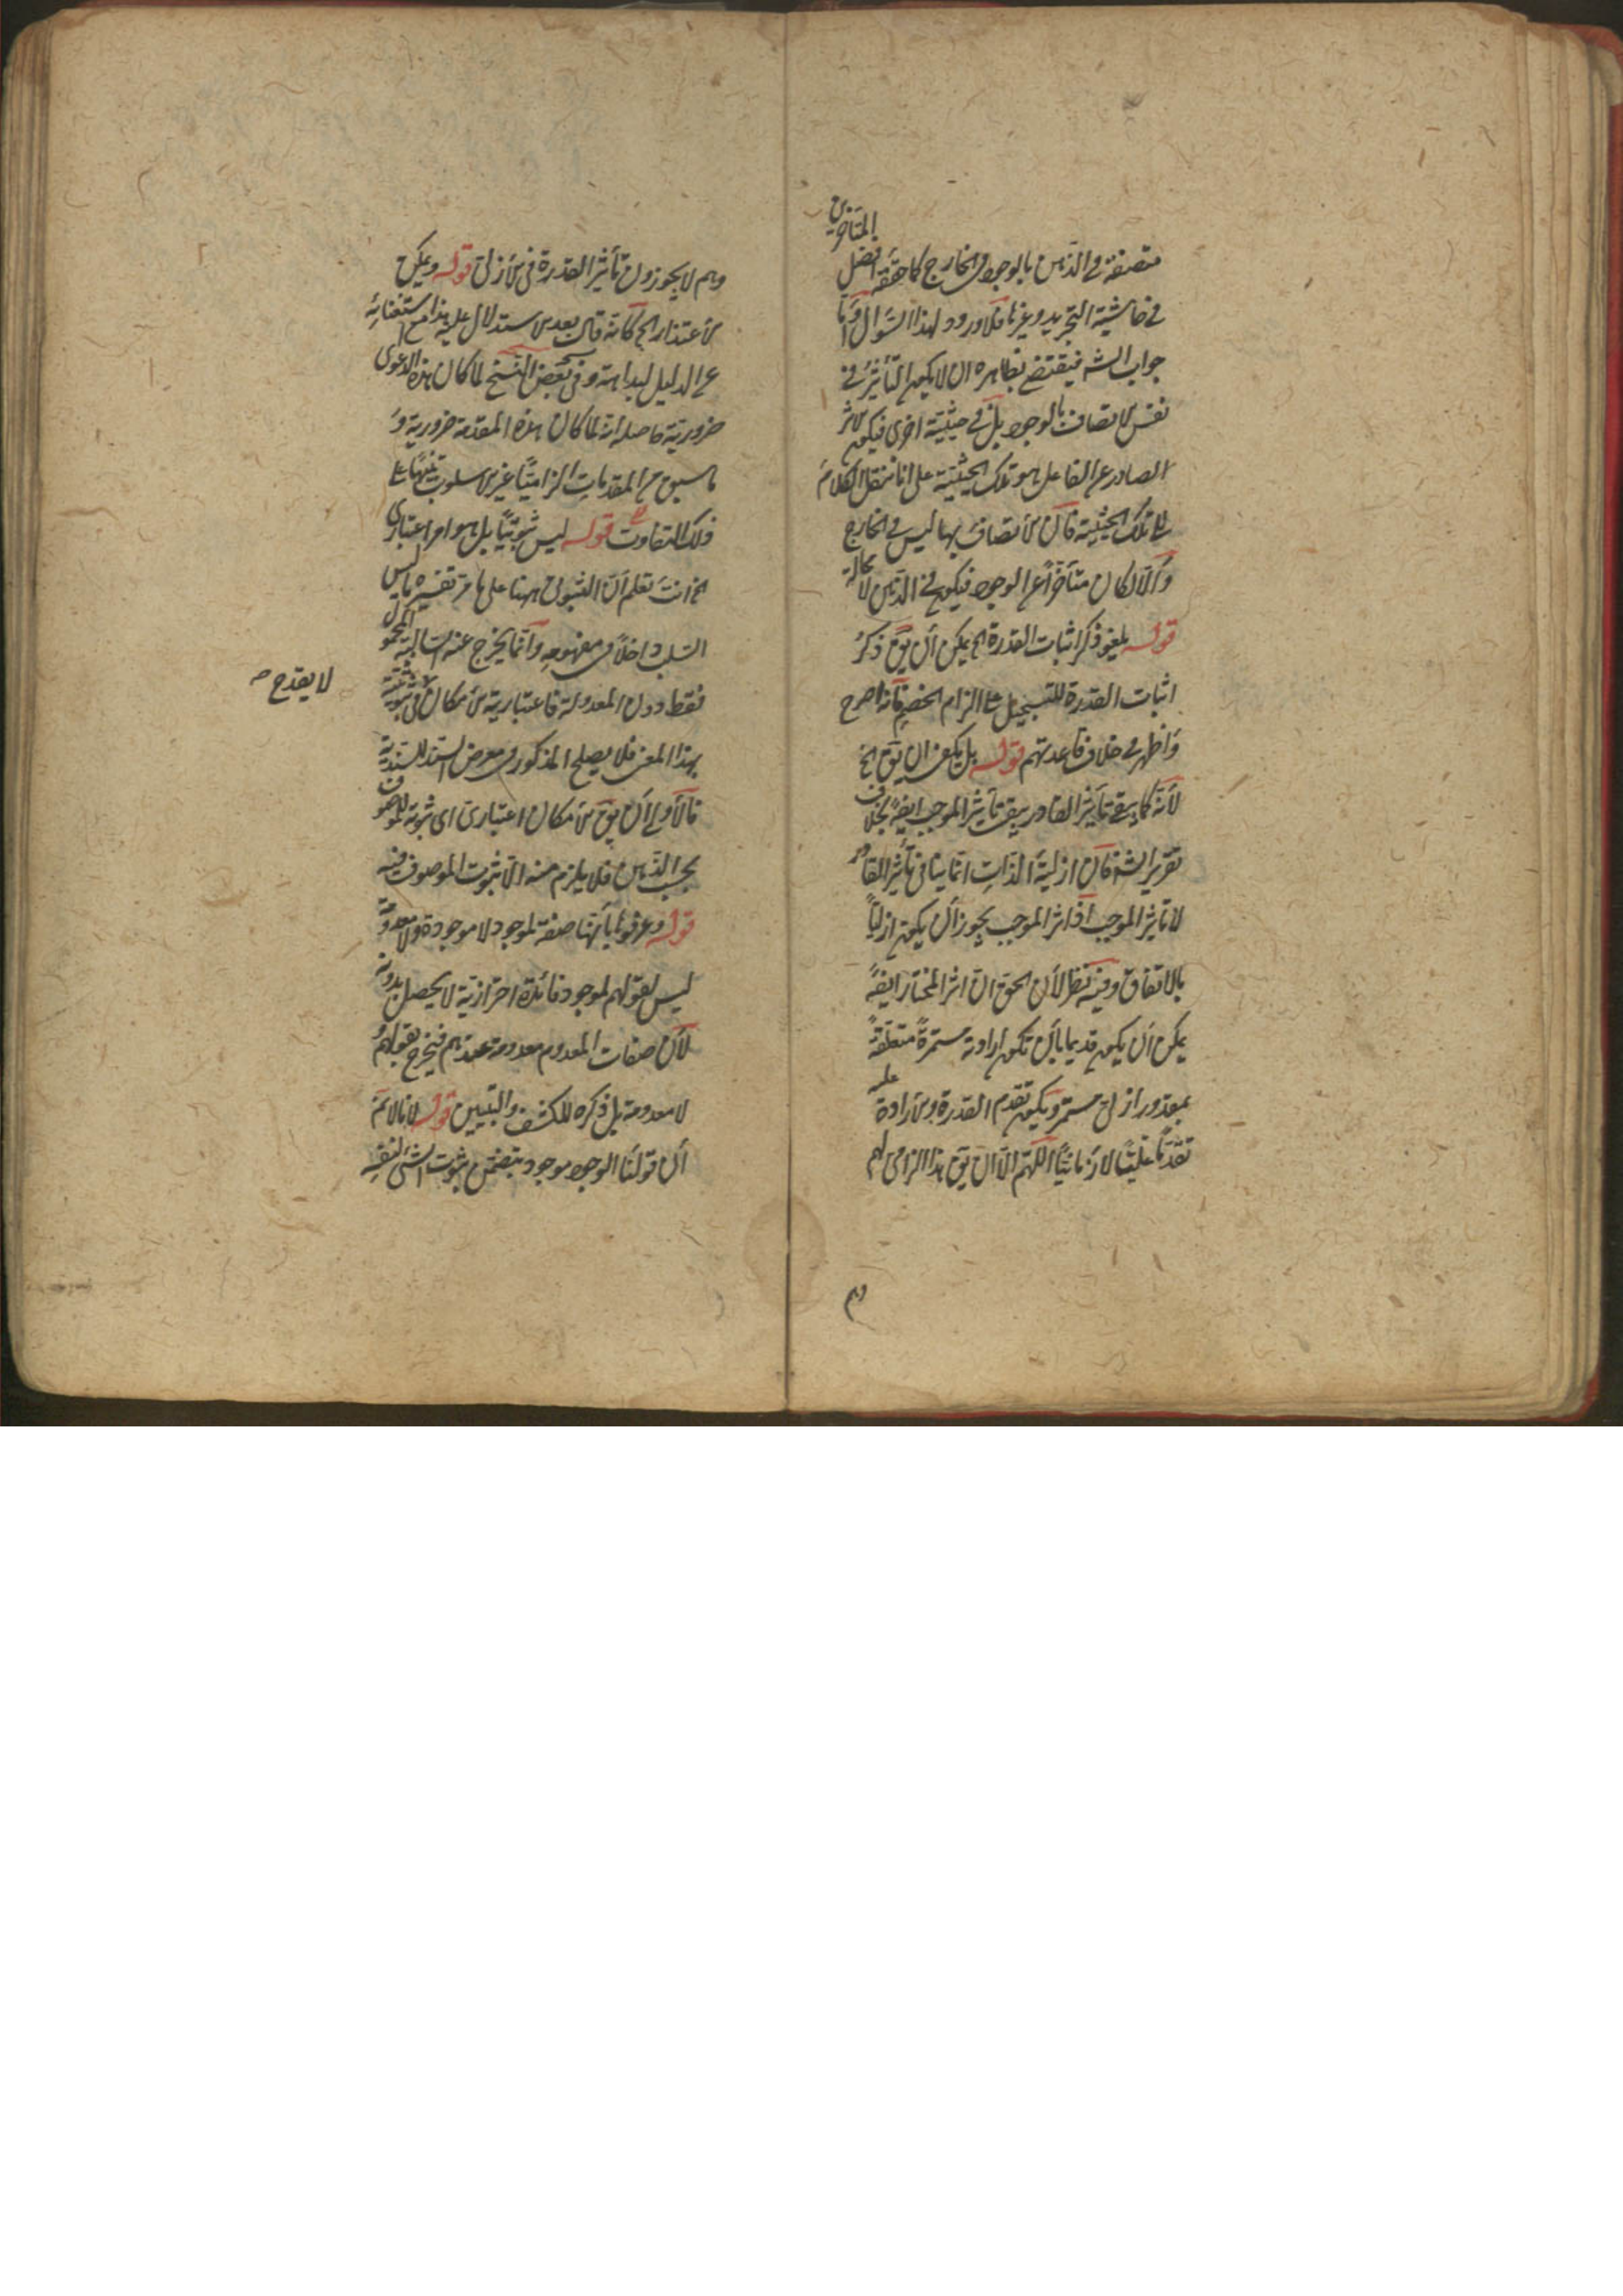 متصفة في الذهن بالوجود في الخارج كما حققه افضل المتأخرين
في حاشية التجريد وغيرها فلا ورود لهذا السؤال وأما
جواب الشه فيقتضي بظاهره ان لا يكون التأثير في
نفس الاتصاف بالوجود بل في حيثية اخرى فيكون الاثر
الصادر عن الفاعل هو تلك الحيثية على انا ننقل الكلام
الى تلك الحيثية فان الاتصاف بها ليس في الخارج
وإلا لكان متأخرا عن الوجود فيكون في الذهن لا محالة
قوله يلغو ذكر اثبات القدرة الخ يمكن أن يق ذكر
اثبات القدرة للتسجيل على الزام الخصم فانه اصرح
وأظهر في خلاف قاعدتهم قوله بل يكفي ان يق الخ
لأنه كما ينفي تأثير القادر ينفي تأثير الموجب ايضا بخلاف
تقرير الشه فان ازلية الذات انما ينافي تأثير القادر
لا تأثير الموجب اذ اثر الموجب يجوز أن يكون ازليا
بالاتفاق وفيه نظر لأن الحق ان اثر المختار ايضا
يمكن أن يكون قديما بأن تكون ارادته مستمرة متعلقة
بمقدور ازلي مستمر ويكون تقدم القدرة والارادة عليه
تقدما عليا لا زمانيا اللهم الا ان يق هذا الزامي لهم
وهم
وهم لا يجوزون تأثير القدرة في الأزلي قوله ويمكن
الاعتذار الخ كأنه قال بعد الاستدلال عليه هذا مع استغنائه
عن الدليل لبداهته وفي بعض النسخ لما كان هذه الدعوى
ضرورية حاصله انه لما كان هذه المقدمة ضرورية و
ما سبق من المقدمات الزاميا غير الاسلوب تنبيها على
ذلك التفاوت قوله ليس ثبوتيا بل هو امر اعتباري
الخ انت تعلم أن الثبوتي ههنا على ما مر تفسيره ما ليس
السلب داخلا في مفهومه وانما يخرج عنه السالبة المحمول
فقط دون المعدولة فاعتبارية الامكان لا يقدح في ثبوتيته
بهذا المعنى فلا يصلح المذكور في معرض السند للسندية
فالأولى أن يق الامكان اعتباري اي ثبوته للموصوف
بحسب الذهن فلا يلزم منه الا ثبوت الموصوف فيه
قوله وعرفوها بأنها صفة لموجود لا موجودة ولا معدومة
ليس لقولهم لموجود فائدة احترازية لا يحصل بدونه
لأن صفات المعدوم معدومة عندهم فيخرج بقولهم
لا معدومة بل ذكره للكشف والتبيين قوله لانا لانم
أن قولنا الوجود موجود يتضمن ثبوت الشئ لنفسه
لا يقدح